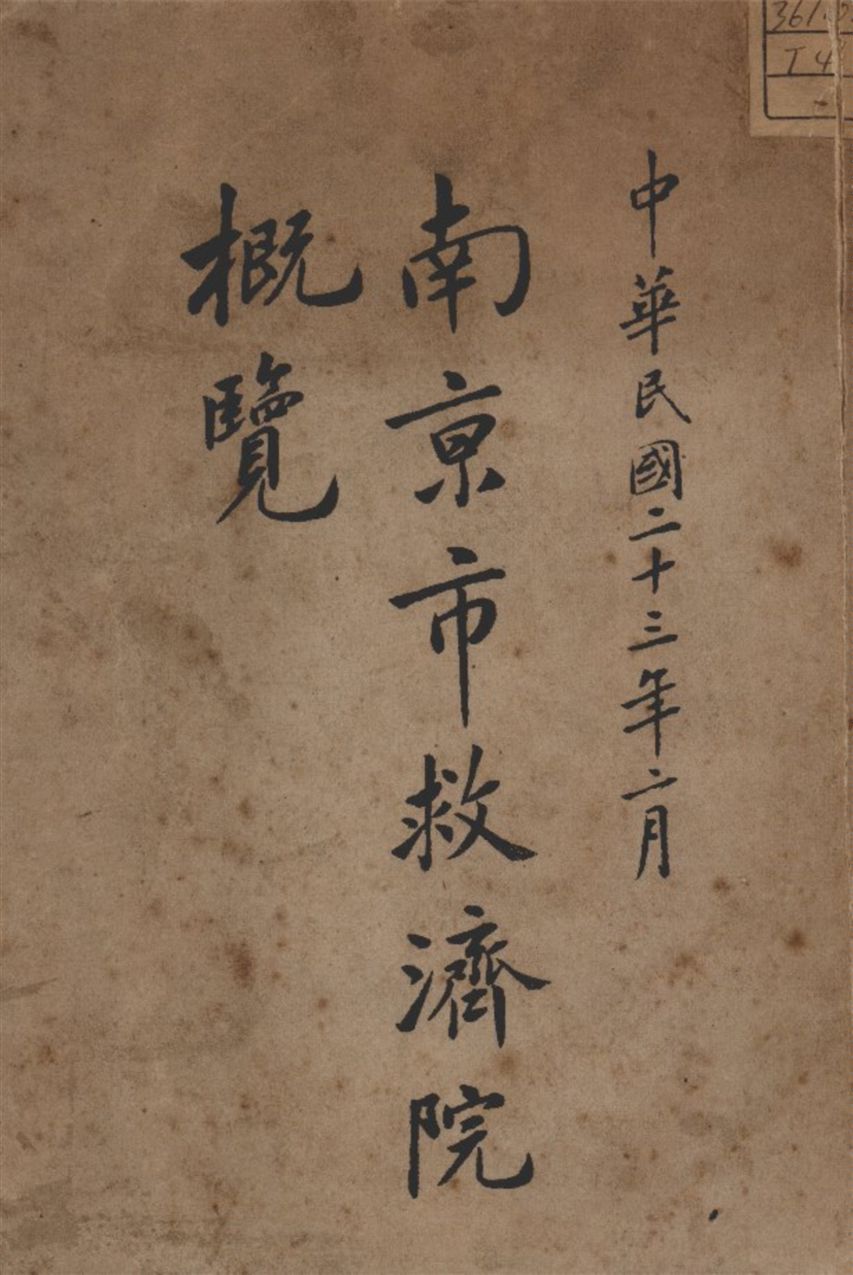 中華民國二十三年二月
南京市救濟院
概覽
361.
T4